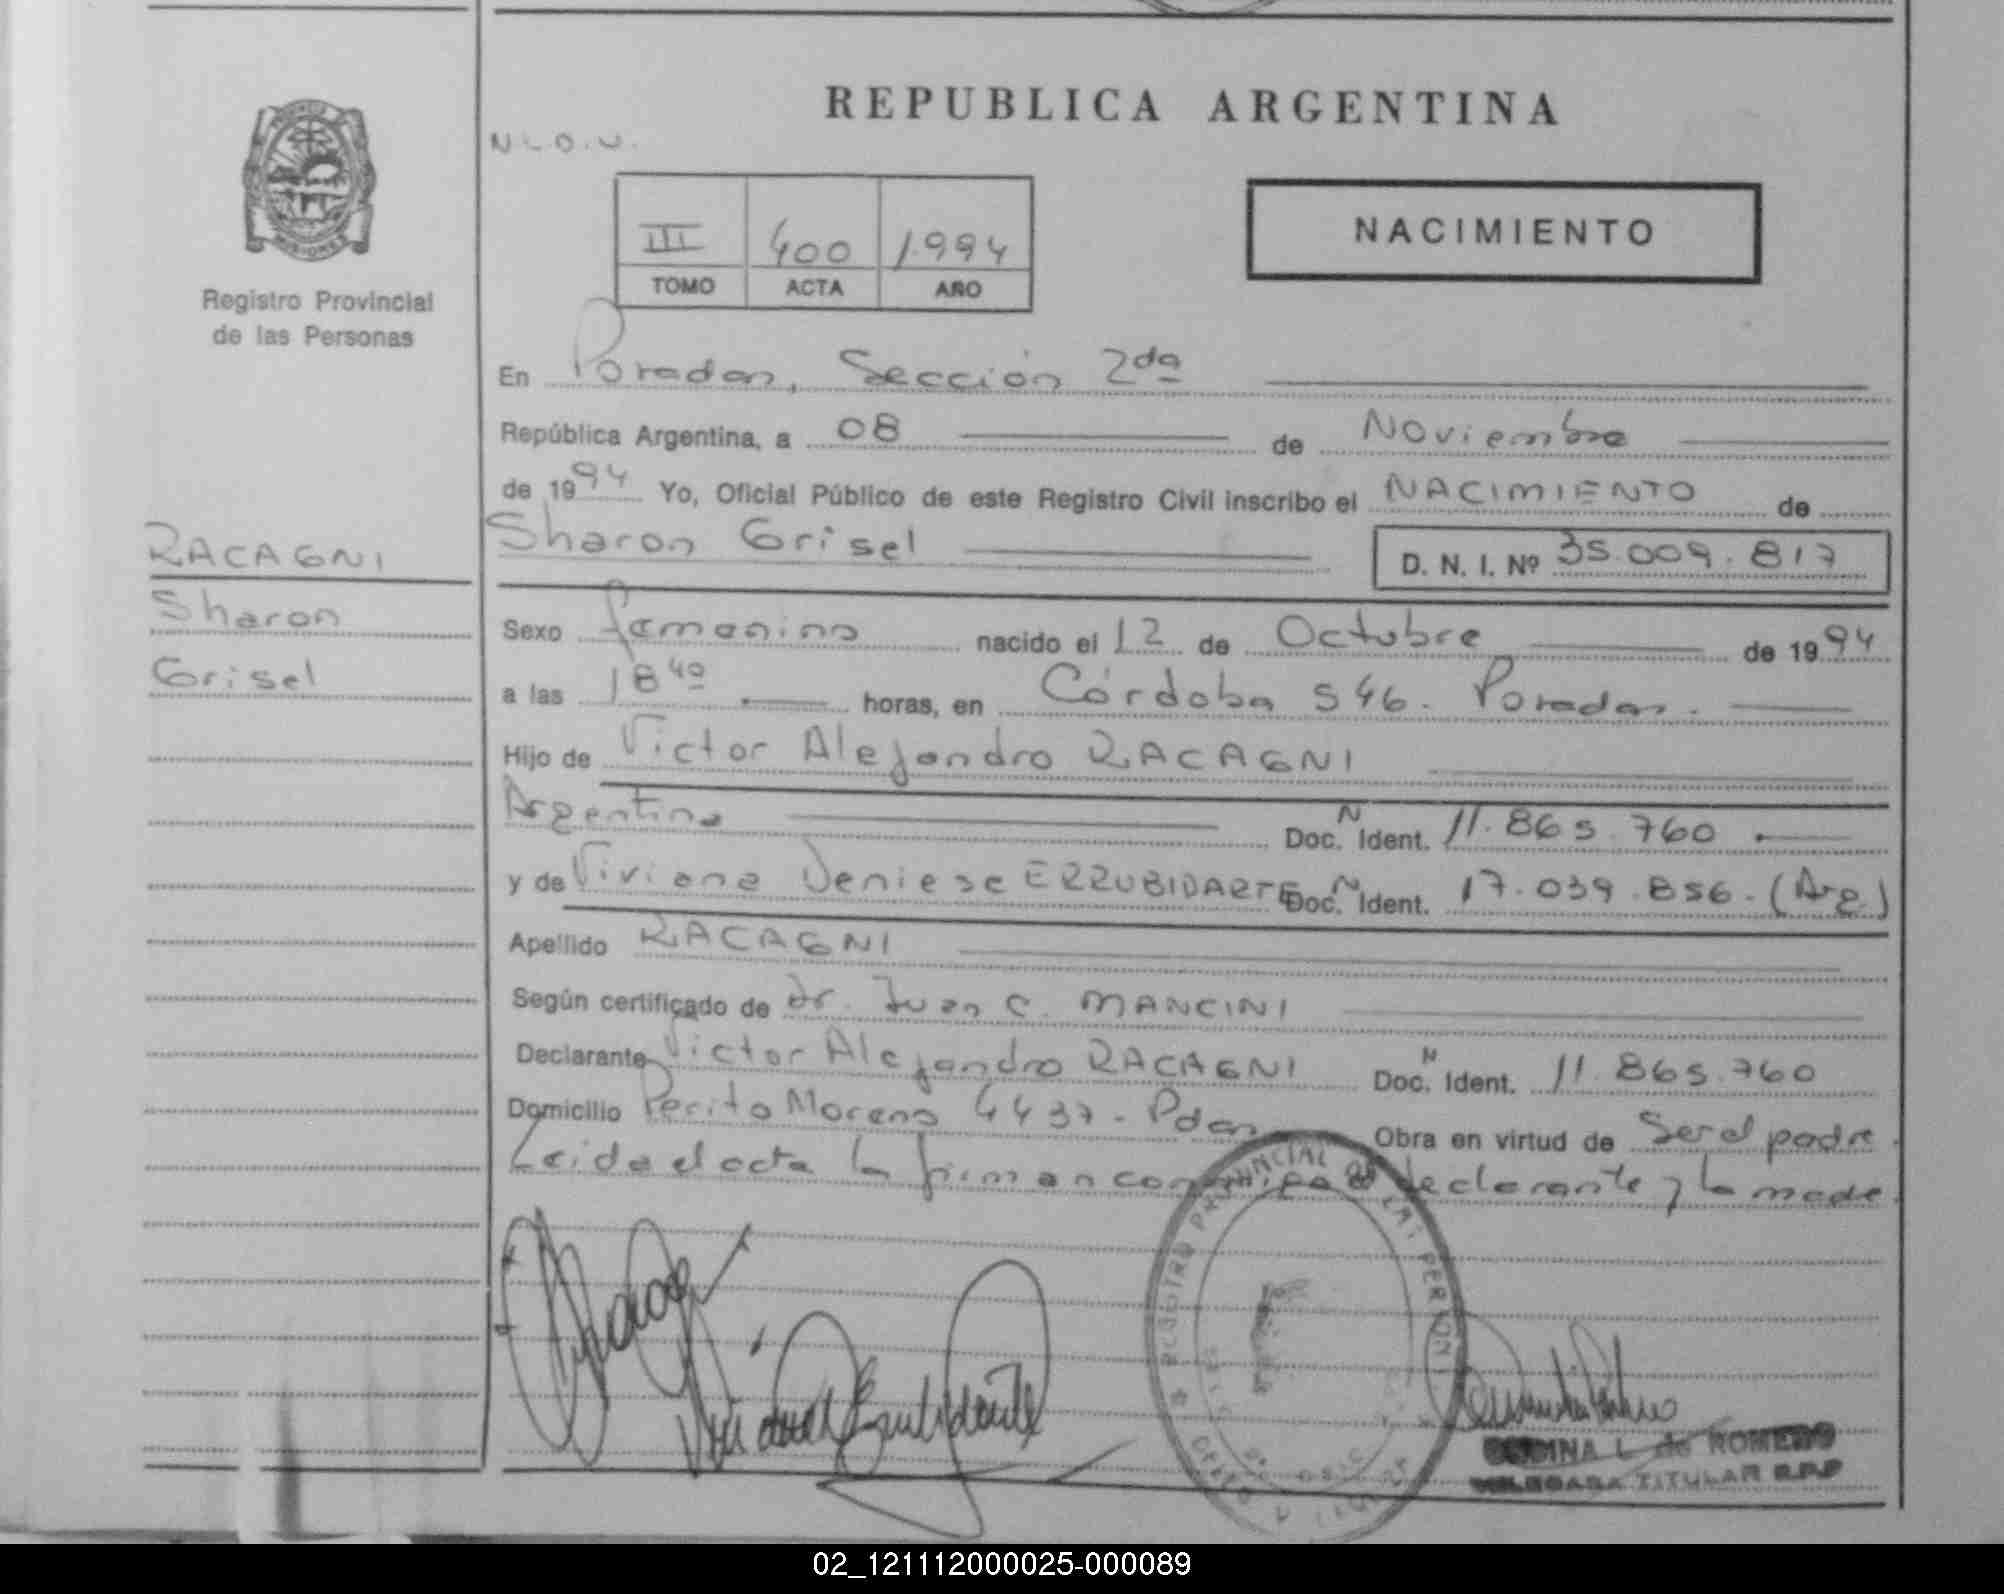 REPUBLICA ARGENTINA
N.L.O.V.
III 400 1.994
TOMO ACTA AÑO
NACIMIENTO
PROVINCIA
MISIONES
Registro Provincial
de las Personas
En Posadas, Sección 2da
República Argentina, a 08 de Noviembre
de 1994 Yo, Oficial Público de este Registro Civil inscribo el NACIMIENTO de
RACAGNI
Sharon
Grisel
Sharon Grisel D. N. I. Nº 35.009.817
Sexo femenino nacido el 12 de Octubre de 1994
a las 18 40 horas, en Córdoba 546. Posadas.
Hijo de Victor Alejandro RACAGNI
Argentina Doc. N Ident. 11.865.760
y de Viviana Deniese ERRUBIDARTE Doc. N Ident. 17.039.856.(Arg.)
Apellido RACAGNI
Según certificado de Dr. Juan C. MANCINI
Declarante Victor Alejandro RACAGNI Doc. N Ident. 11.865.760
Domicilio Perito Moreno 4437 - Pdas Obra en virtud de Ser el padre.
Leida el acta la firman conmigo el declarante y la madre.
REGISTRO PROVINCIAL
L. de ROMERO
DELEGADA TITULAR R.P.P
02_121112000025-000089